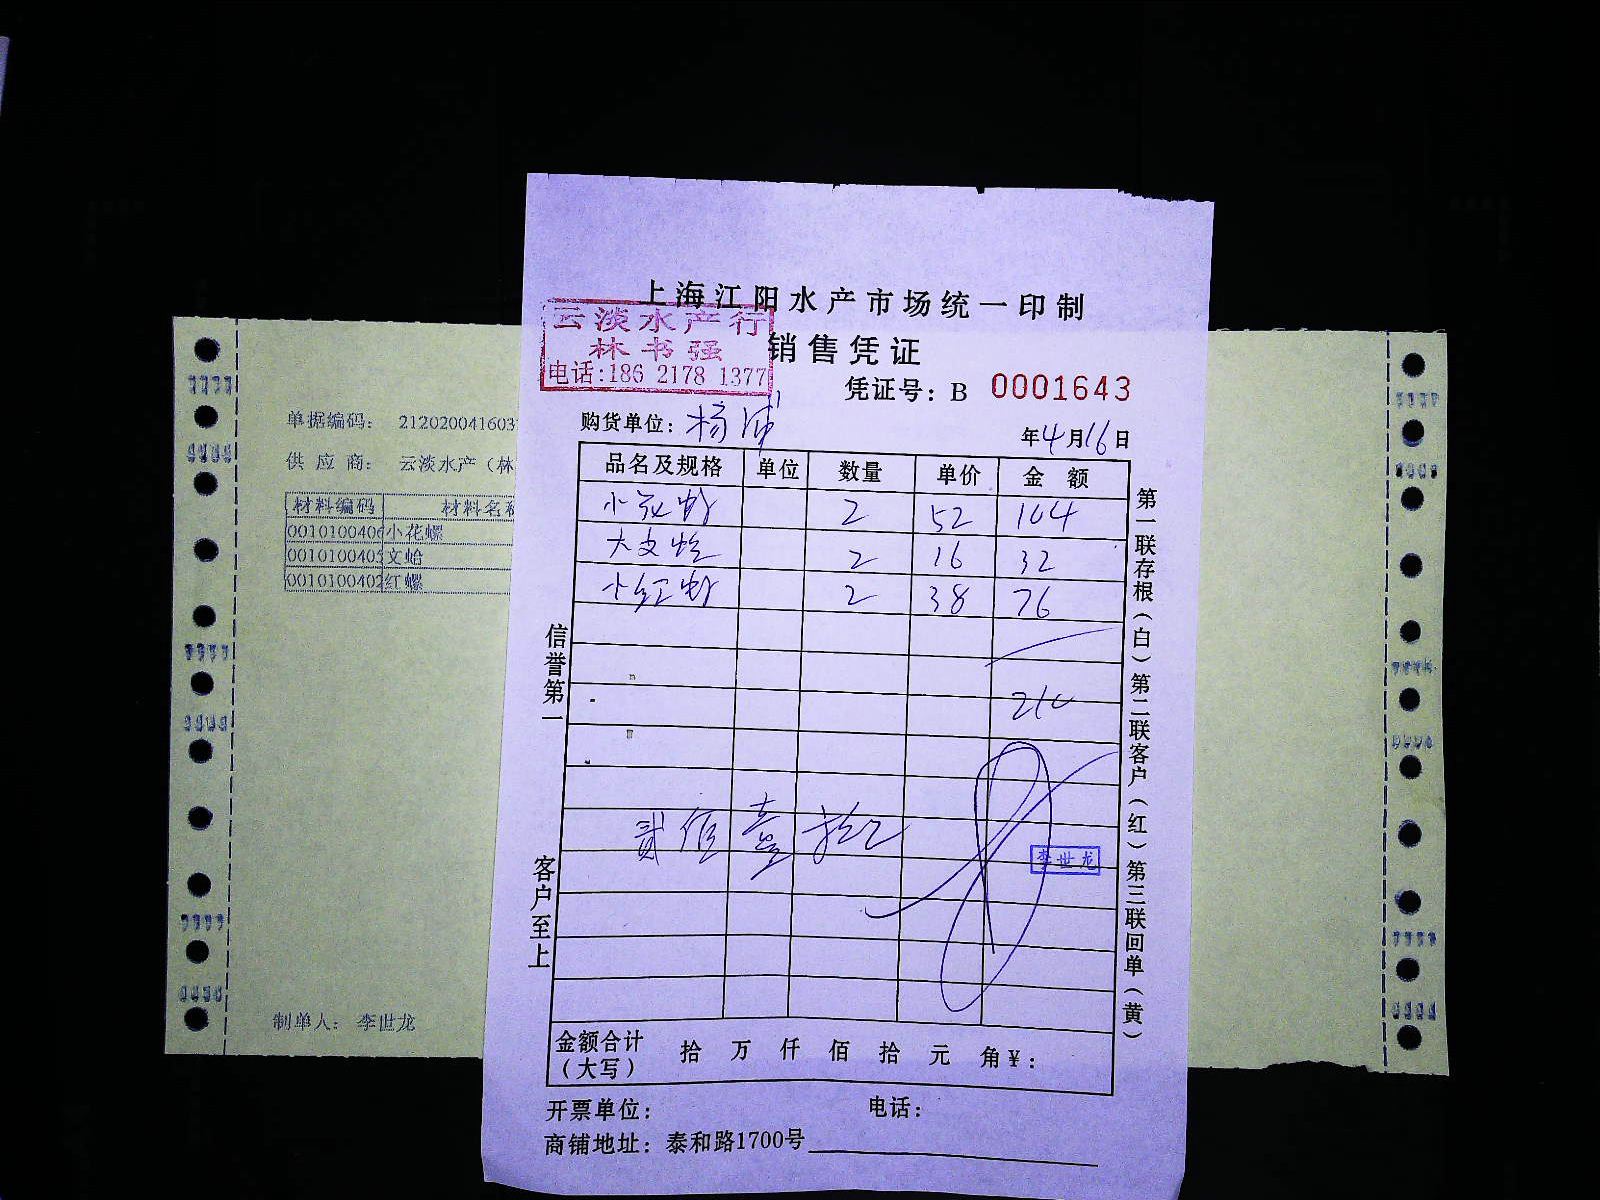 上海江阳水产市场统一印制
云淡水产行
林书强
电话:186 2178 1377
销售凭证
凭证号: B 0001643
购货单位: 杨浦
年4月16日
品名及规格 单位 数量 单价 金额
小花 2 52 104
大文蛤 2 16 32
小红 2 38 76
贰佰壹拾
李世龙
金额合计(大写) 拾 万 仟 佰 拾 元 角¥:
开票单位: 电话:
商铺地址: 泰和路1700号
信誉第一
客户至上
第一联存根(白)第二联客户(红)第三联回单(黄)
单据编码: 21202004160
供应商: 云淡水产(林
材料编码 材料名
0010100406 小花螺
001010040 文蛤
0010100402 红螺
制单人: 李世龙